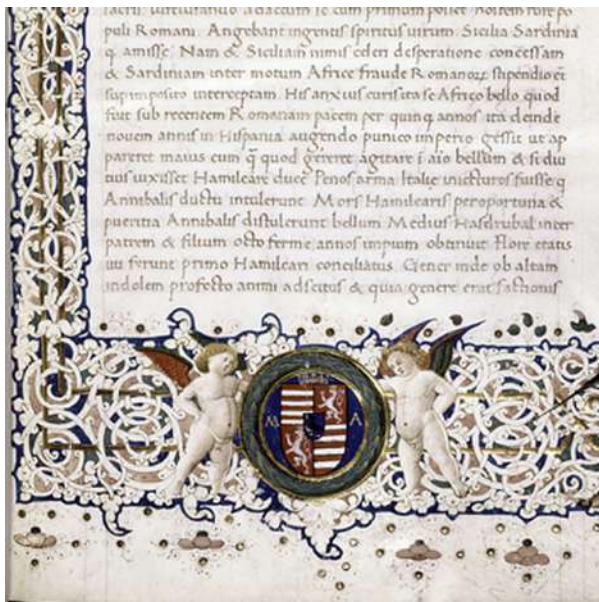 puli Romani. Angebant ingentis spiritus virum Sicilia Sardinia
q amisse. Nam & Siciliam nimis celeri desperatione concessam
& Sardiniam inter motum Africe fraude Romanoꝝ stipendio et
sup imposito interceptam. His anxius curis ita se Africo bello quod
fuit sub recentem Romanam pacem per quinq annos ita deinde
novem annis in Hispania augendo punico imperio gessit ut ap
pareret maius eum q̄ quod gereret agitare ī aīo bellum & si diu
tius vixisset Hamilcare duce Penos arma Italie
Annibalis ductu intulerunt. Mors Hamilcaris peroportuna &
pueritia Annibalis distulerunt bellum. Medius Hasdrubal inter
patrem & filium octo ferme annos obtinuit Flore etatis
uti ferunt primo Hamilcari conciliatus. Gener inde ob altam
indolem profecto animi adscitus & quia genere erat factionis
M A